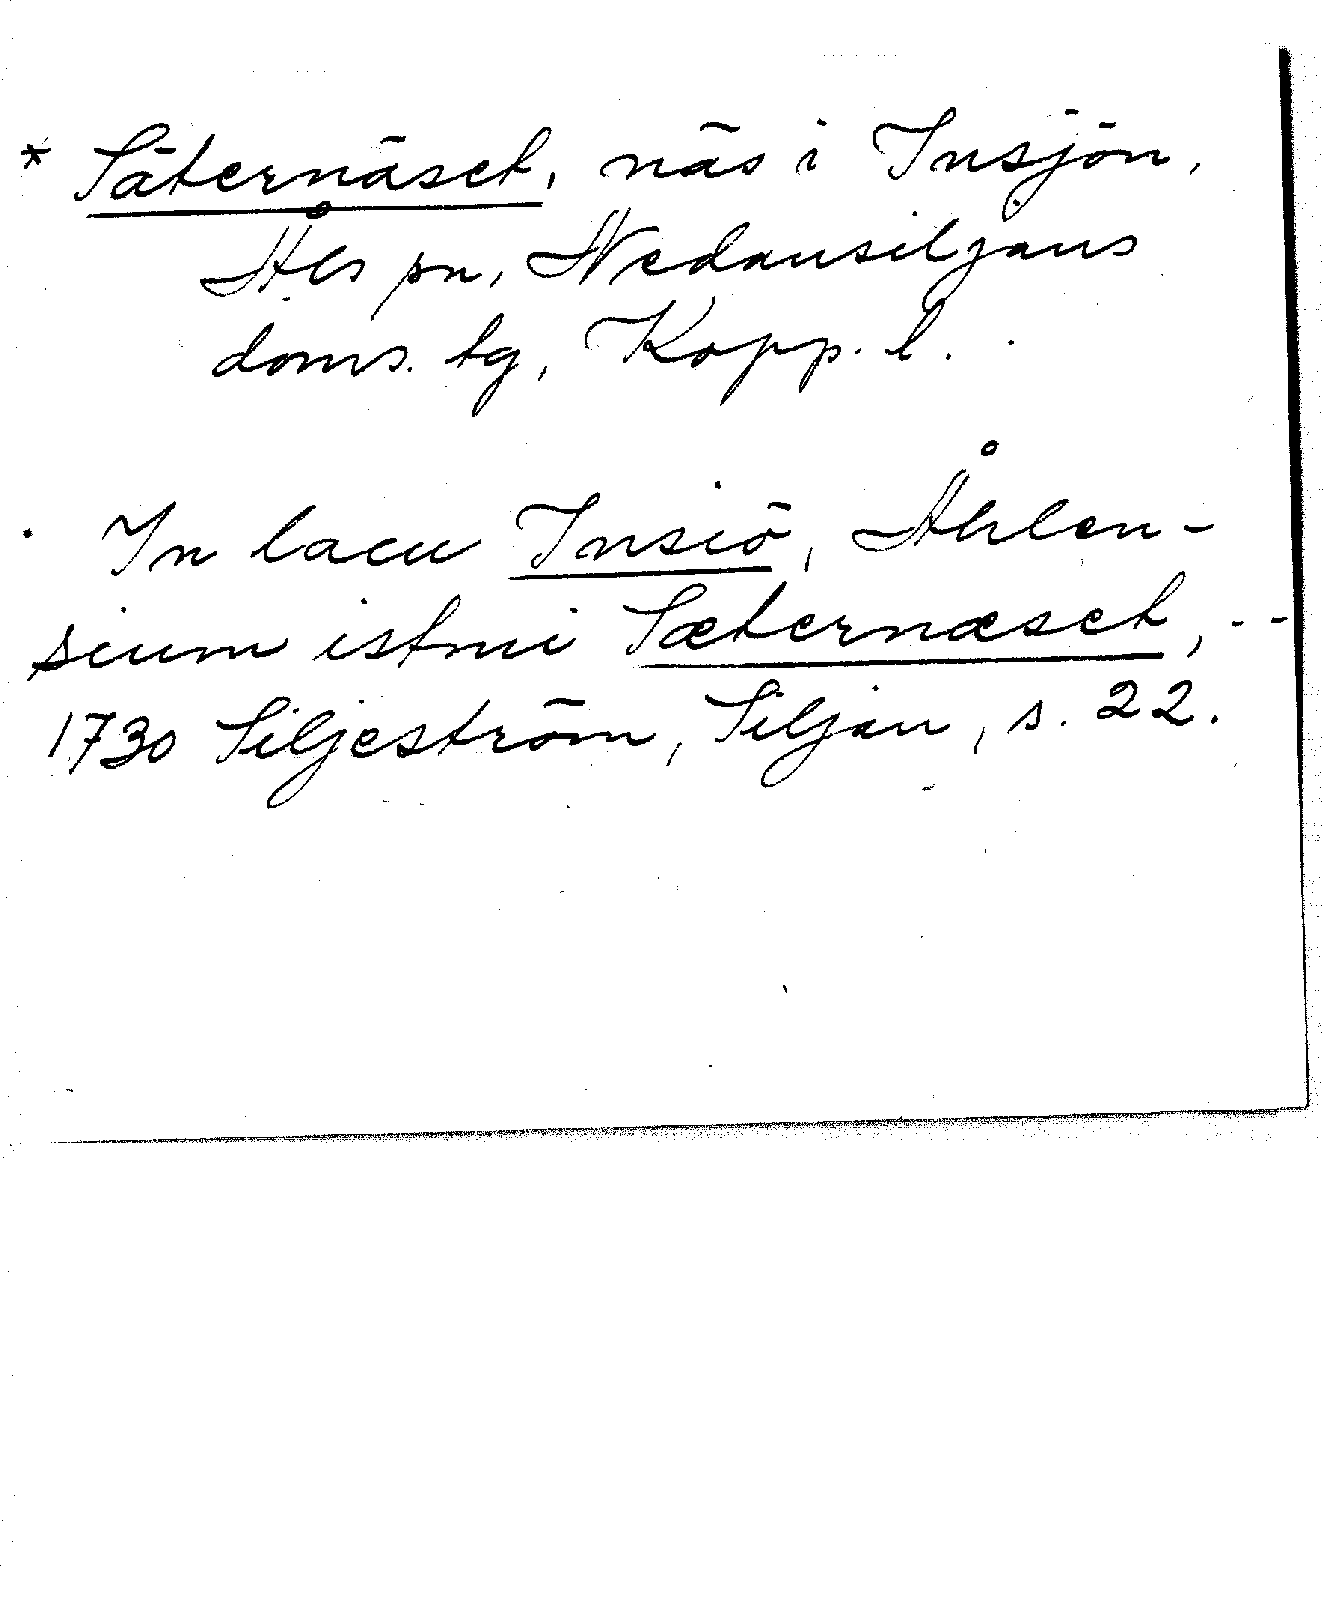 * Säternäset, näs i Insjön,
Åls sn, Nedansiljans
doms. tg, Kopp. l.
In lacu Insiö, Åhlen-
sium istmi Sæternæset, --
1730 Siljeström, Siljan, s. 22.